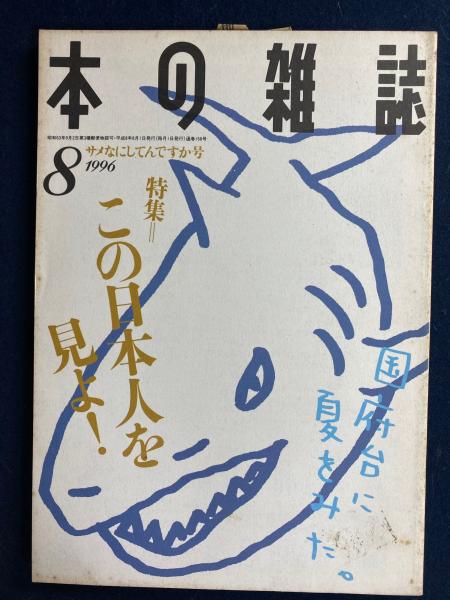 本の雑誌
昭和63年9月2日第3種郵便物認可・平成8年8月1日発行(毎月1日発行)通巻158号
サメなにしてんですか号
8
1996
特集＝
この日本人を
見よ!
国府台に
夏をみた。